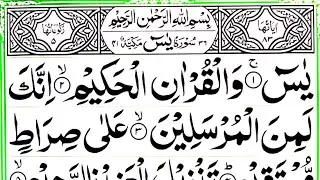 اٰیَاتُهَا ٨٣
بِسْمِ اللّٰهِ الرَّحْمٰنِ الرَّحِیْمِ
سُوْرَةُ یٰسٓ مَكِّیَّةٌ
رُكُوْعَاتُهَا ٥
یٰسٓ ۚ﴿١﴾ وَالْقُرْاٰنِ الْحَكِیْمِ ۙ﴿٢﴾ اِنَّكَ
لَمِنَ الْمُرْسَلِیْنَ ۙ﴿٣﴾ عَلٰی صِرَاطٍ
مُّسْتَقِیْمٍ ؕ﴿٤﴾ تَنْزِیْلَ الْعَزِیْزِ الرَّحِیْمِ